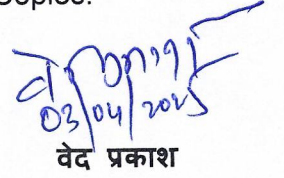 Copies.
03/04/2025
वेद प्रकाश